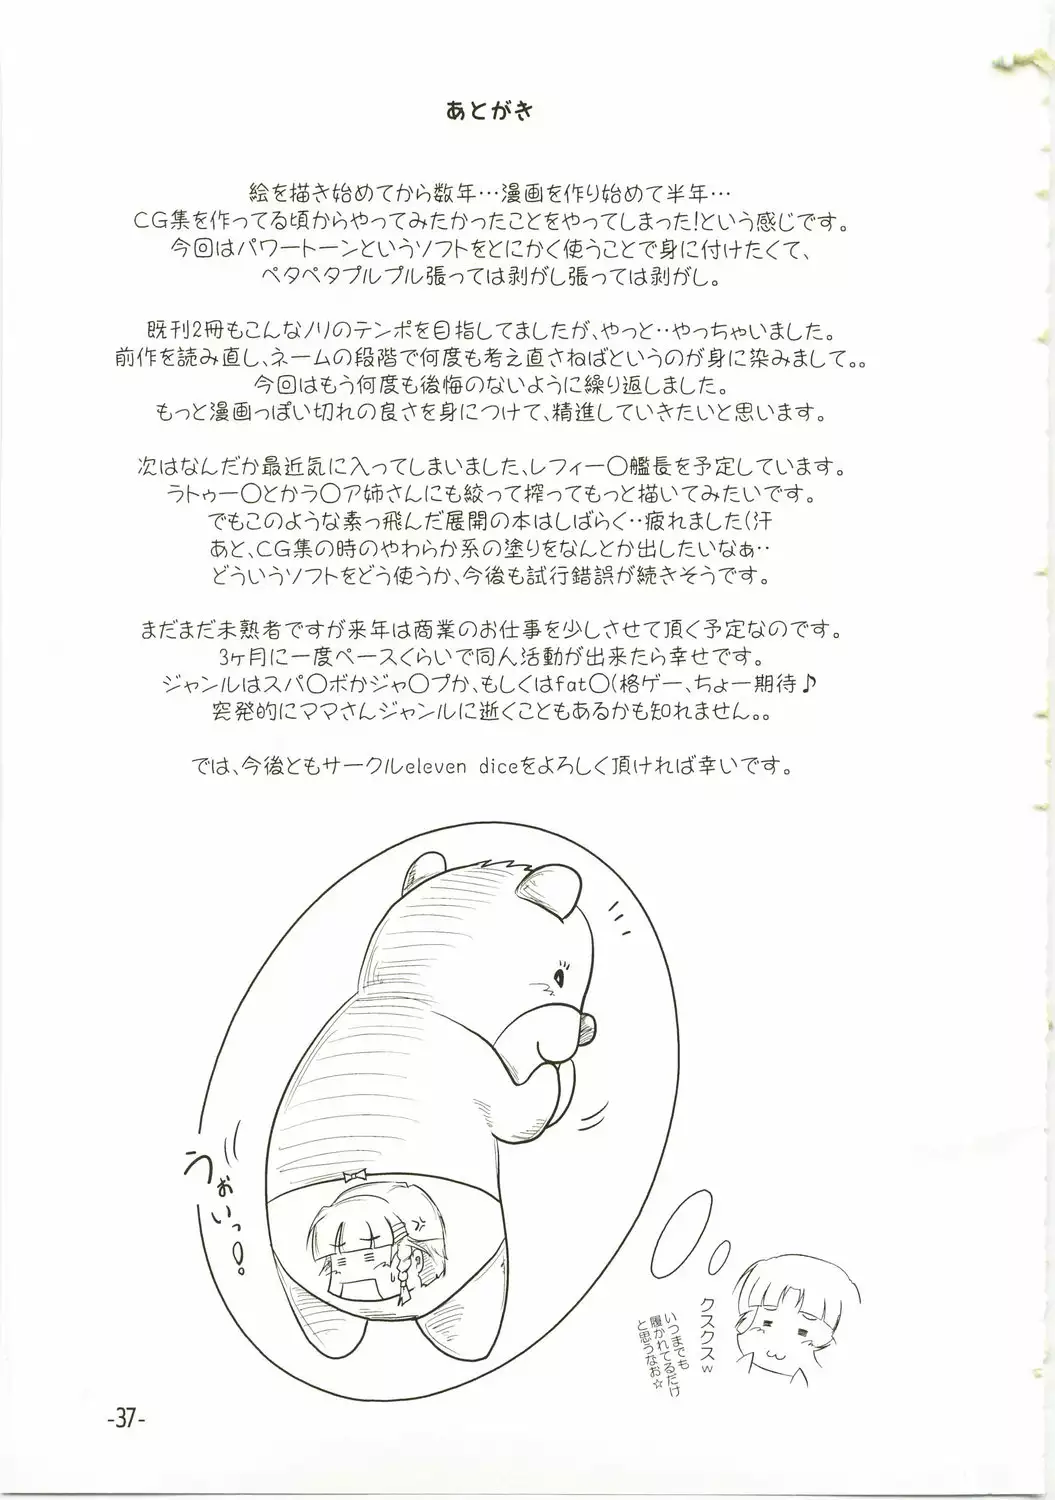 あとがき
絵を描き始めてから数年…漫画を作り始めて半年…
CG集を作ってる頃からやってみたかったことをやってしまった!という感じです。
今回はパワートーンというソフトをとにかく使うことで身に付けたくて、
ペタペタプルプル張っては剥がし張っては剥がし。
既刊2冊もこんなノリのテンポを目指してましたが、やっと‥やっちゃいました。
前作を読み直し、ネームの段階で何度も考え直さねばというのが身に染みまして。。
今回はもう何度も後悔のないように繰り返しました。
もっと漫画っぽい切れの良さを身につけて、精進していきたいと思います。
次はなんだか最近気に入ってしまいました、レフィー〇艦長を予定しています。
ラトゥー〇とかラ〇ア姉さんにも絞って搾ってもっと描いてみたいです。
でもこのような素っ飛んだ展開の本はしばらく‥疲れました(汗
あと、CG集の時のやわらか系の塗りをなんとか出したいなぁ‥
どういうソフトをどう使うか、今後も試行錯誤が続きそうです。
まだまだ未熟者ですが来年は商業のお仕事を少しさせて頂く予定なのです。
3ヶ月に一度ペースくらいで同人活動が出来たら幸せです。
ジャンルはスパ〇ボかジャ〇プか、もしくはfat〇(格ゲー、ちょー期待♪
突発的にママさんジャンルに逝くこともあるかも知れません。。
では、今後ともサークルeleven diceをよろしく頂ければ幸いです。
うぉいっ!
クスクスw
いつまでも
履かれてるだけ
と思うなお☆
-37-